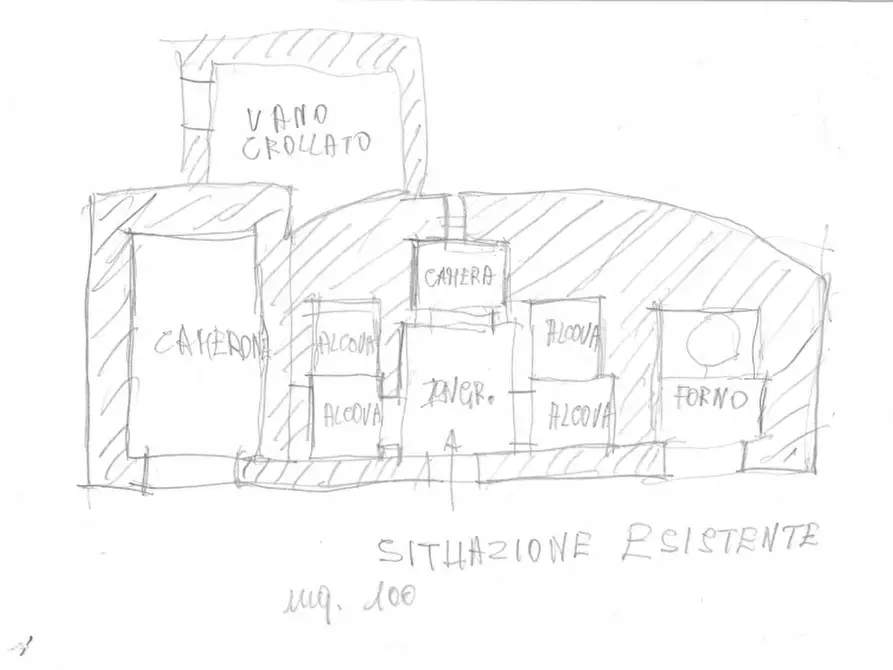 VANO
CROLLATO
CAMERA
CAMERONE
ALCOVA
ALCOVA
INGR.
ALCOVA
ALCOVA
FORNO
SITUAZIONE ESISTENTE
mq. 100